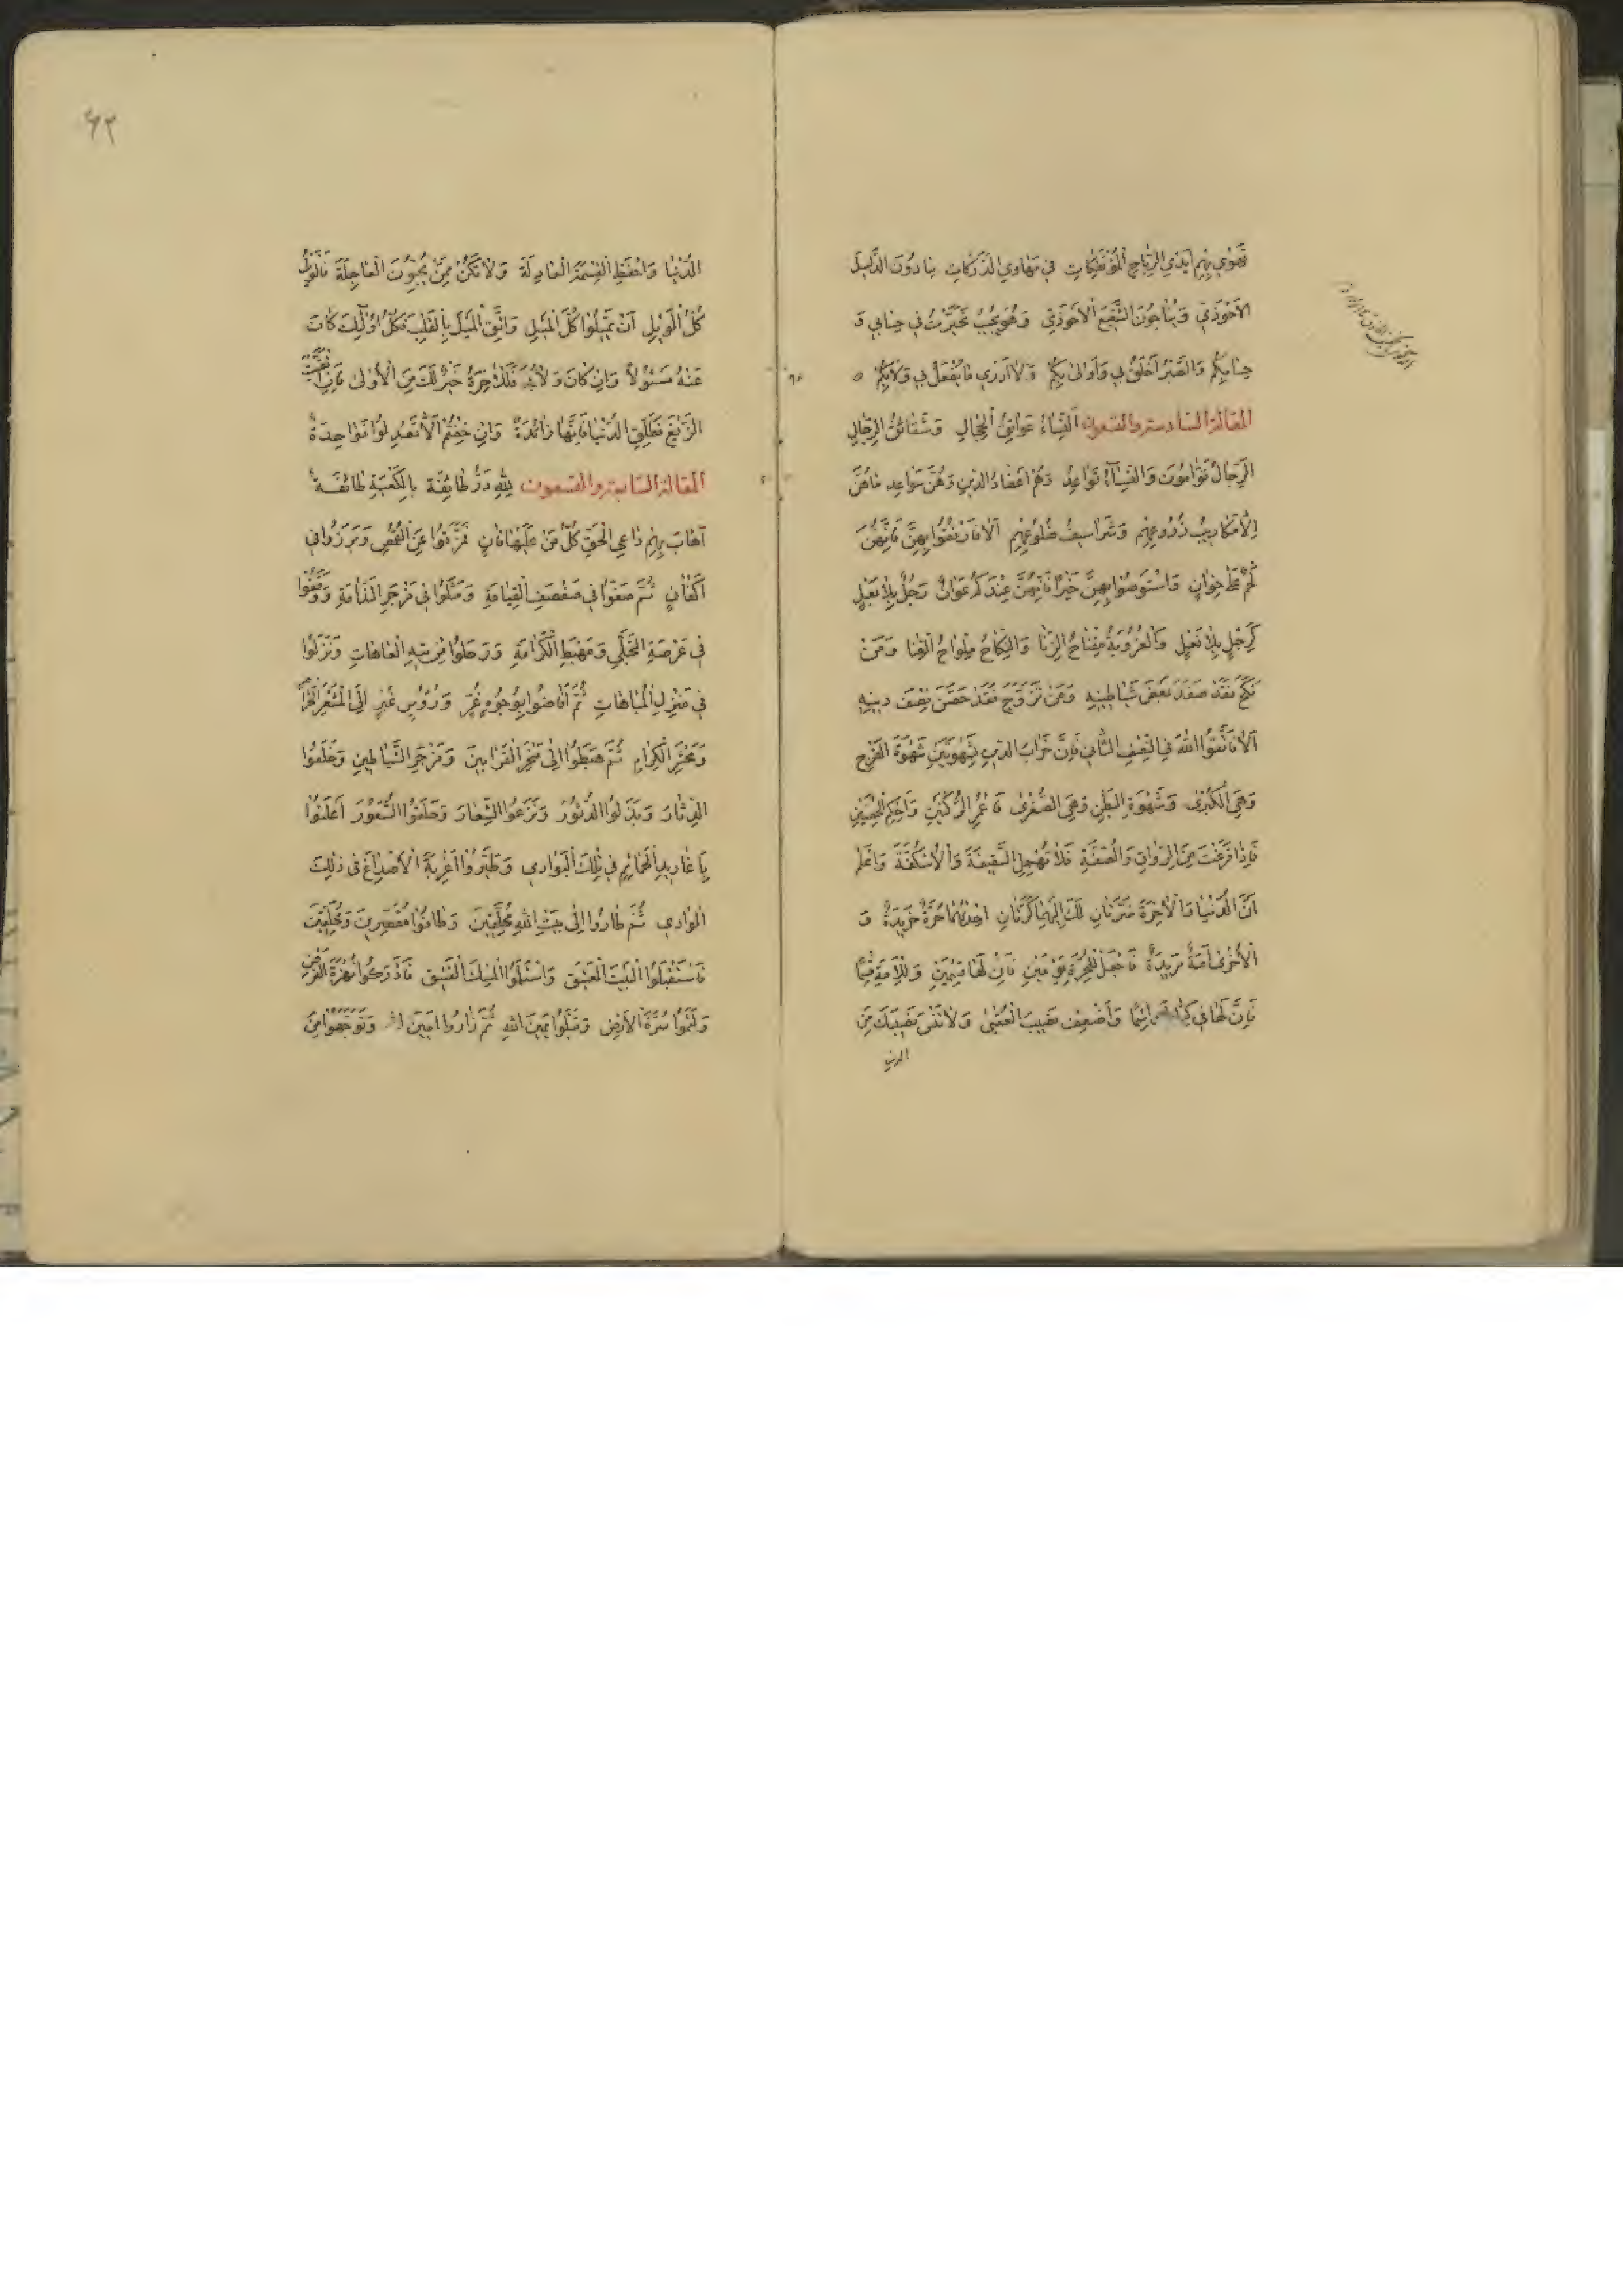 تَهْوِي بِهِمْ اَيْدِي الرِّيَاحِ الْمُؤْتَفِكَاتِ فِي مَهَاوِي الدَّرَكَاتِ يُنَادُونَ الدَّلِيلَ
الْاَحْوَذِيَّ وَيُنَاجُونَ الشَّفِيعَ الْاَحْوَذِيَّ وَهُوَ يُجِيبُ تَحَيَّرْتُ فِي حِسَابِي وَ
حِسَابِكُمْ وَالصَّبْرُ اَخْلَقُ بِي وَاَوْلَى بِكُمْ وَلَا اَدْرِي مَا يُفْعَلُ بِي وَلَا بِكُمْ
المقالة السادسة والتسعون اَلنِّسَاءُ عَوَاتِقُ الْحِجَالِ وَشَقَائِقُ الرِّجَالِ
الرِّجَالُ قَوَّامُونَ وَالنِّسَاءُ قَوَاعِدُ وَهُمْ اَعْضَادُ الدِّينِ وَهُنَّ سَوَاعِدُ مَا هُنَّ
اِلَّا مَكَاذِيبُ زُرُوعِهِمْ وَشَرَاسِيفُ ضُلُوعِهِمْ اَلَا فَارْفُقُوا بِهِنَّ فَاِنَّهُنَّ
لَحْمٌ عَلَى خِوَانٍ وَاسْتَوْصُوا بِهِنَّ خَيْرًا فَاِنَّهُنَّ عِنْدَكُمْ عَوَانٌ رَجُلٌ بِلَا بَعْلٍ
كَرِجْلٍ بِلَا نَعْلٍ وَالْعُزُوبَةُ مِفْتَاحُ الزِّنَا وَالنِّكَاحُ مِلْوَاحُ الْغِنَا وَمَنْ
نَكَحَ فَقَدْ صَفَدَ بَعْضَ شَيَاطِينِهِ وَمَنْ تَزَوَّجَ فَقَدْ حَصَّنَ نِصْفَ دِينِهِ
اَلَا فَاتَّقُوا اللّٰهَ فِي النِّصْفِ الثَّانِي فَاِنَّ خَرَابَ الدِّينِ بِشَهْوَتَيْنِ شَهْوَةِ الْفَرْجِ
وَهِيَ الْكُبْرَى وَشَهْوَةِ الْبَطْنِ وَهِيَ الصُّغْرَى فَاعْمُرِ الرُّكْنَيْنِ وَاَحْكِمِ الْحِصْنَيْنِ
فَاِذَا فَرَغْتَ مِنَ الرِّوَاقِ وَالصُّفَّةِ فَلَا تُهْمِلِ السَّقِيفَةَ وَالْاُسْكُفَّةَ وَاعْلَمْ
اَنَّ الدُّنْيَا وَالْاٰخِرَةَ ضَرَّتَانِ لَكَ اِلَيْهِمَا كَرَّتَانِ اِحْدٰيهُمَا حُرَّةٌ خَرِيدَةٌ وَ
الْاُخْرَى اَمَةٌ مَرِيدَةٌ فَاجْعَلْ لِلْحُرَّةِ يَوْمَيْنِ فَاِنَّ لَهَا قِسْمَيْنِ وَلِلْاَمَةِ قِسْمًا
فَاِنَّ لَهَا فِي كِتَابِ اسْمًا وَاَضْعِفْ نَصِيبَ الْعُقْبَى وَلَا تَنْسَ نَصِيبَكَ مِنَ
الدنيا
٦٣
الدُّنْيَا وَاحْفَظِ الْقِسْمَةَ الْعَادِلَةَ وَلَا تَكُنْ مِمَّنْ يُحِبُّونَ الْعَاجِلَةَ فَالْوَيْلُ
كُلُّ الْوَيْلِ اَنْ تَمِيلُوا كُلَّ الْمَيْلِ وَاتَّقِ الْمَيْلَ بِالْقَلْبِ فَكُلُّ اُولٰئِكَ كَانَ
عَنْهُ مَسْئُولًا وَاِنْ كَانَ وَلَا بُدَّ فَلَلْاٰخِرَةُ خَيْرٌ لَكَ مِنَ الْاُولَى فَاِنْ خِفْتَ
الزَّيْغَ فَطَلِّقِ الدُّنْيَا فَاِنَّهَا زَائِدَةٌ وَاِنْ خِفْتُمْ اَلَّا تَعْدِلُوا فَوَاحِدَةً
المقالة السابعة والتسعون لِلّٰهِ دَرُّ طَائِفَةٍ بِالْكَعْبَةِ طَائِفَةٍ
اَهَابَ بِهِمْ دَاعِي الْحَقِّ كُلُّ مَنْ عَلَيْهَا فَانٍ فَتَزَّهُوا عَنِ الْقُمُصِ وَبَرَزُوا فِي
اَكْفَانٍ ثُمَّ صَفُّوا فِي صَفْصَفِ الْقِيَامَةِ وَمَثَلُوا فِي مَزْجَرِ النَّدَامَةِ وَوَقَفُوا
فِي عَرْصَةِ التَّجَلِّي وَمَهْبَطِ الْكَرَامَةِ وَرَحَلُوا مِنْ تِيهِ الْعَاهَاتِ وَنَزَلُوا
فِي مَنْزِلِ الْمُبَاهَاتِ ثُمَّ اَفَاضُوا بِوُجُوهٍ غُرٍّ وَرُؤُسٍ غُبْرٍ اِلَى الْمَشْعَرِ الْحَرَامِ
وَمَحْشَرِ الْكِرَامِ ثُمَّ هَبَطُوا اِلَى مَنْحَرِ الْقَرَابِينَ وَمَزْجَرِ الشَّيَاطِينِ وَخَلَعُوا
الدِّثَارَ وَبَذَلُوا الدُّثُورَ وَنَزَعُوا الشِّعَارَ وَحَلَقُوا الشُّعُورَ اَعْلَنُوا
بِاَغَارِيدِ الْحَمَائِمِ فِي تِلْكَ الْبَوَادِي وَطَيَّرُوا اَغْرِبَةَ الْاَصْدَاغِ فِي ذٰلِكَ
الْوَادِي ثُمَّ طَارُوا اِلَى بَيْتِ اللّٰهِ مُحَلِّقِينَ وَطَافُوا مُقَصِّرِينَ وَمُحَلِّقِينَ
فَاسْتَقْبَلُوا الْبَيْتَ الْعَتِيقَ وَاسْتَلَمُوا الْمِسْكَ الْفَتِيقَ فَاَدْرَكُوا نُهْزَةَ الْفَرْضِ
وَلَثَمُوا سُرَّةَ الْاَرْضِ وَقَبَّلُوا يَمِينَ اللّٰهِ ثُمَّ زَارُوا اَمِينَ اللّٰهِ وَتَوَجَّهُوا مِنَ